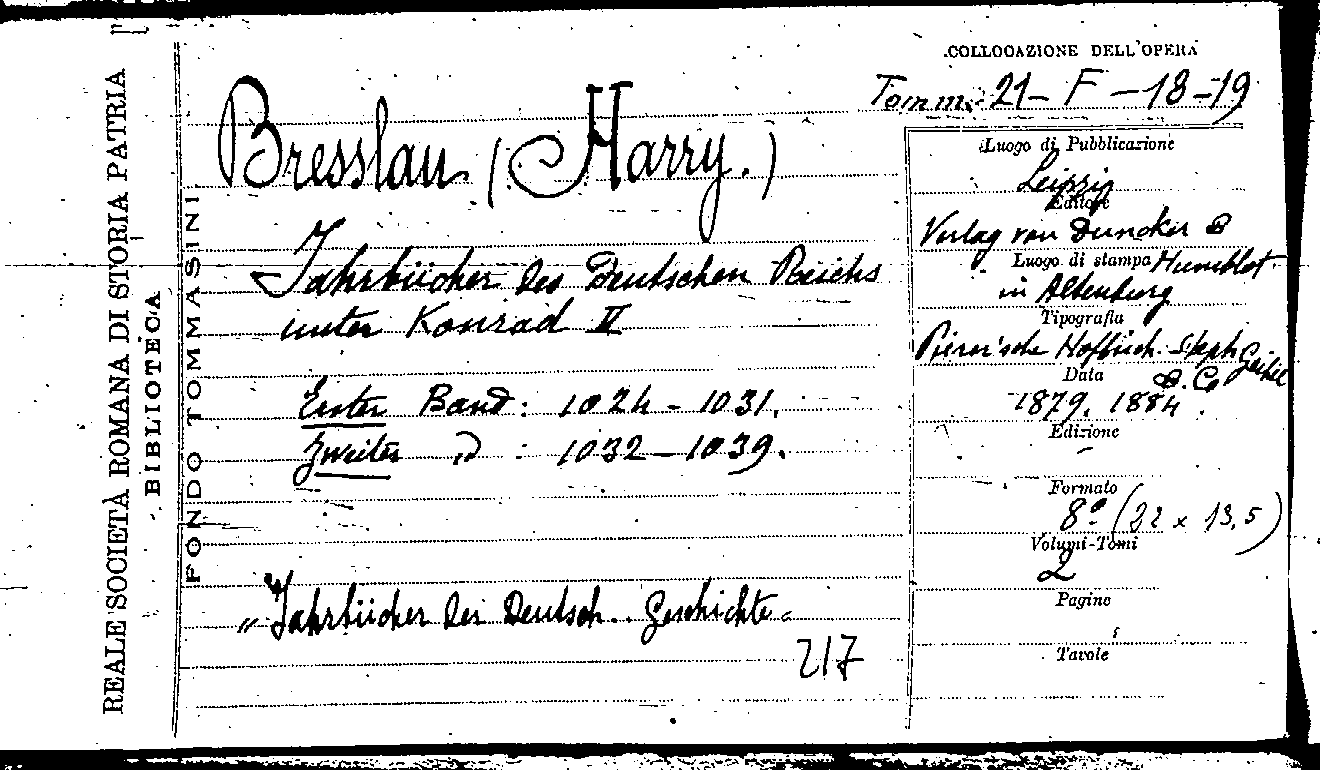 REALE SOCIETÀ ROMANA DI STORIA PATRIA
BIBLIOTECA
FONDO TOMMASINI
COLLOCAZIONE DELL'OPERA
Tomm. 21 - F - 18 - 19
Bresslau (Harry.)
Jahrbücher des Deutschen Reichs
unter Konrad II
Erster Band: 1024 - 1031.
Zweiter D : 1032 - 1039.
"Jahrbücher der Deutsch. Geschichte"
217
Luogo di Pubblicazione
Leipzig
Editore
Verlag von Duncker &
Luogo di stampa Humblot
in Altenburg
Tipografia
Pierer'sche Hofbuch. Steph Geibel
Data & Co
1879. 1884.
Edizione
-
Formato
8º (22 x 13,5)
Volumi-Tomi
2
Pagine
Tavole